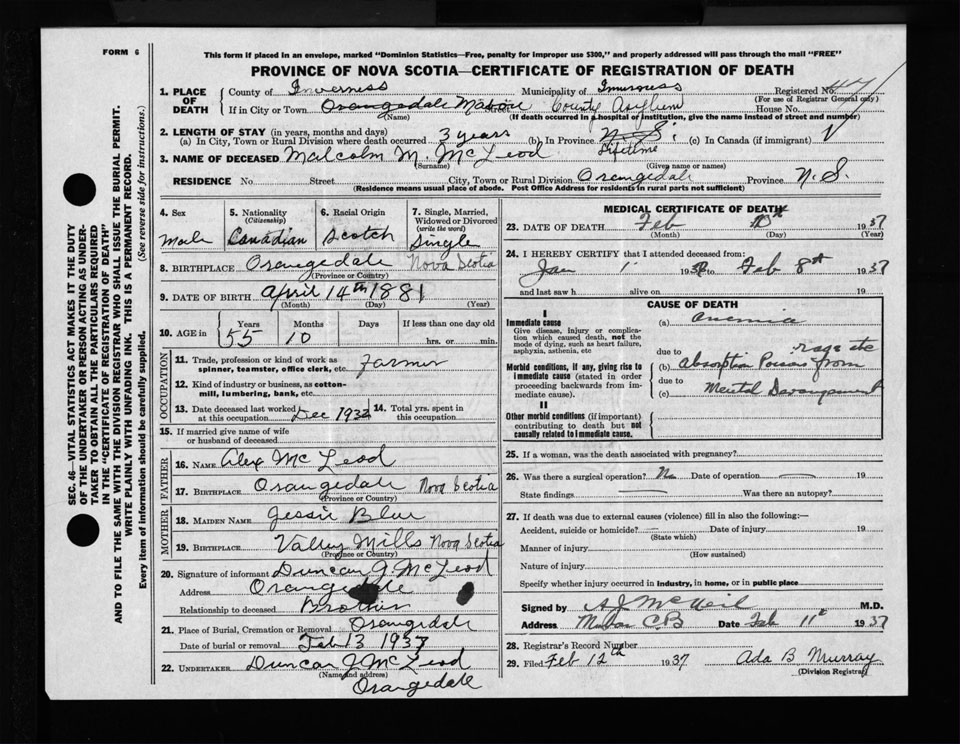 FORM 6
This form if placed in an envelope, marked "Dominion Statistics—Free, penalty for improper use $300," and properly addressed will pass through the mail "FREE"
PROVINCE OF NOVA SCOTIA—CERTIFICATE OF REGISTRATION OF DEATH
SEC. 46—VITAL STATISTICS ACT MAKES IT THE DUTY
OF THE UNDERTAKER OR PERSON ACTING AS UNDER-
TAKER TO OBTAIN ALL THE PARTICULARS REQUIRED
IN THE "CERTIFICATE OF REGISTRATION OF DEATH"
AND TO FILE THE SAME WITH THE DIVISION REGISTRAR WHO SHALL ISSUE THE BURIAL PERMIT.
WRITE PLAINLY WITH UNFADING INK. THIS IS A PERMANENT RECORD.
Every item of information should be carefully supplied. (See reverse side for instructions.)
1. PLACE OF DEATH County of Inverness Municipality of Inverness Registered No.
(For use of Registrar General only)
If in City or Town Orangedale County Asylum House No.
(Name) (If death occurred in a hospital or institution, give the name instead of street and number)
2. LENGTH OF STAY (in years, months and days)
(a) In City, Town or Rural Division where death occurred 3 years (b) In Province N.S. Lifetime (c) In Canada (if immigrant)
3. NAME OF DECEASED Malcolm M. McLeod
(Surname) (Given name or names)
RESIDENCE No. Street City, Town or Rural Division Orangedale Province N.S.
(Residence means usual place of abode. Post Office Address for residents in rural parts not sufficient)
4. Sex Male
5. Nationality (Citizenship) Canadian
6. Racial Origin Scotch
7. Single, Married, Widowed or Divorced (write the word) Single
8. BIRTHPLACE Orangedale Nova Scotia
(Province or Country)
9. DATE OF BIRTH April 14th 1881
(Month) (Day) (Year)
10. AGE in Years 55 Months 10 Days If less than one day old hrs. or min.
OCCUPATION
11. Trade, profession or kind of work as spinner, teamster, office clerk, etc. Farmer
12. Kind of industry or business, as cotton-mill, lumbering, bank, etc.
13. Date deceased last worked at this occupation Dec 1932 14. Total yrs. spent in this occupation
15. If married give name of wife or husband of deceased
FATHER
16. NAME Alex McLeod
17. BIRTHPLACE Orangedale Nova Scotia
(Province or Country)
MOTHER
18. MAIDEN NAME Jessie Blue
19. BIRTHPLACE Valley Mills Nova Scotia
(Province or Country)
20. Signature of informant Duncan J. McLeod
Address Orangedale
Relationship to deceased Brother
21. Place of Burial, Cremation or Removal Orangedale
Date of burial or removal Feb 13 1937
22. UNDERTAKER Duncan J McLeod
(Name and address)
Orangedale
MEDICAL CERTIFICATE OF DEATH
23. DATE OF DEATH Feb 1937
(Month) (Day) (Year)
24. I HEREBY CERTIFY that I attended deceased from:
Jan 1 to Feb 8th 1937
and last saw h alive on 19
CAUSE OF DEATH
I
Immediate cause
Give disease, injury or complication which caused death, not the mode of dying, such as heart failure, asphyxia, asthenia, etc
(a) anemia
due to
Morbid conditions, if any, giving rise to immediate cause (stated in order proceeding backwards from immediate cause).
(b) Absorption from
due to
(c) Mental Derangement
II
Other morbid conditions (if important) contributing to death but not causally related to immediate cause.
25. If a woman, was the death associated with pregnancy?
26. Was there a surgical operation? No Date of operation 19
State findings Was there an autopsy?
27. If death was due to external causes (violence) fill in also the following:—
Accident, suicide or homicide? Date of injury 19
(State which)
Manner of injury
(How sustained)
Nature of injury
Specify whether injury occurred in industry, in home, or in public place
Signed by A J McNeil M.D.
Address C.B Date Feb 11th 1937
28. Registrar's Record Number
29. Filed Feb 12th 1937 Ada B Murray
(Division Registrar)